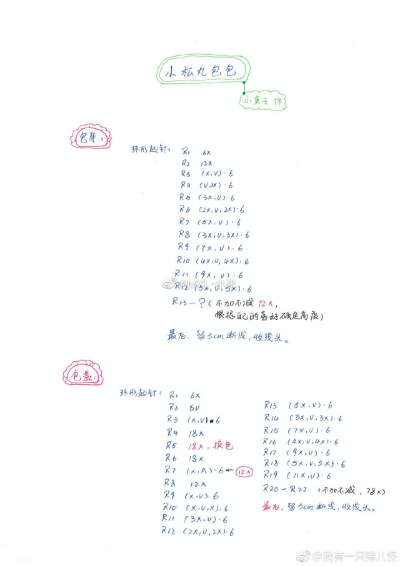 小松丸包包
小黄子作
包身:
环形起针: R1 6X
R2 12X
R3 (X,V)·6
R4 (V,2X)·6
R5 (3X,V)·6
R6 (2X,V,2X)·6
R7 (5X,V)·6
R8 (3X,V,3X)·6
R9 (7X,V)·6
R10 (4X,V,4X)·6
R11 (9X,V)·6
R12 (5X,V,5X)·6
R13-?(不加不减 72X,
根据自己的喜好确定高度)
最后,留5cm断线,收线头。
包盖:
环形起针: R1 6X
R2 6V
R3 (X,V)·6
R4 18X
R5 18X,换色
R6 18X
R7 (X,A)·6 ← 12X
R8 12X
R9 (X,V)·6
R10 (X,V,X)·6
R11 (3X,V)·6
R12 (2X,V,2X)·6
R13 (5X,V)·6
R14 (3X,V,3X)·6
R15 (7X,V)·6
R16 (4X,V,4X)·6
R17 (9X,V)·6
R18 (5X,V,5X)·6
R19 (11X,V)·6
R20-R22 (不加不减,78X)
最后,留5cm断线,收线头。
@我有一只猪八怪